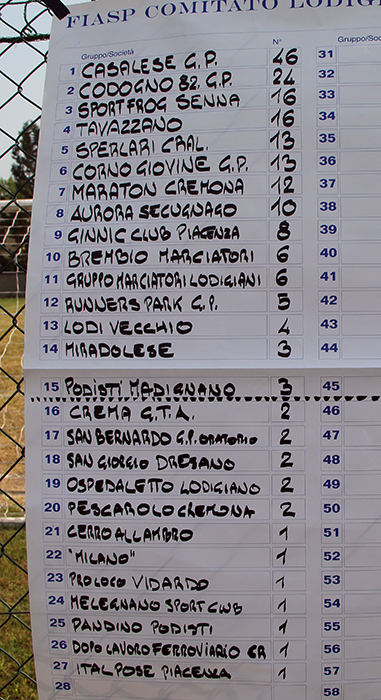 FIASP COMITATO LODIG
Gruppo/Società N° Gruppo/Soc
1 CASALESE G.P. 46 31
2 CODOGNO 82. G.P. 24 32
3 SPORTFROG SENNA 16 33
4 TAVAZZANO 16 34
5 SPERLARI CRAL. 13 35
6 CORNO GIOVINE G.P. 13 36
7 MARATON CREMONA 12 37
8 AURORA SECUGNAGO 10 38
9 GINNIC CLUB PIACENZA 8 39
10 BREMBIO MARCIATORI 6 40
11 GRUPPO MARCIATORI LODIGIANI 6 41
12 RUNNERS PARK G.P. 5 42
13 LODI VECCHIO 4 43
14 MIRADOLESE 3 44
15 PODISTI MADIGNANO 3 45
16 CREMA G.T.A. 2 46
17 SAN BERNARDO G.P. ORATORIO 2 47
18 SAN GIORGIO DRESANO 2 48
19 OSPEDALETTO LODIGIANO 2 49
20 PESCAROLO CREMONA 2 50
21 CERRO ALLAMBRO 1 51
22 "MILANO" 1 52
23 PROLOCO VIDARDO 1 53
24 MELEGNANO SPORT CLUB 1 54
25 PANDINO PODISTI 1 55
26 DOPO LAVORO FERROVIARIO CR 1 56
27 ITALPOSE PIACENZA 1 57
28 58